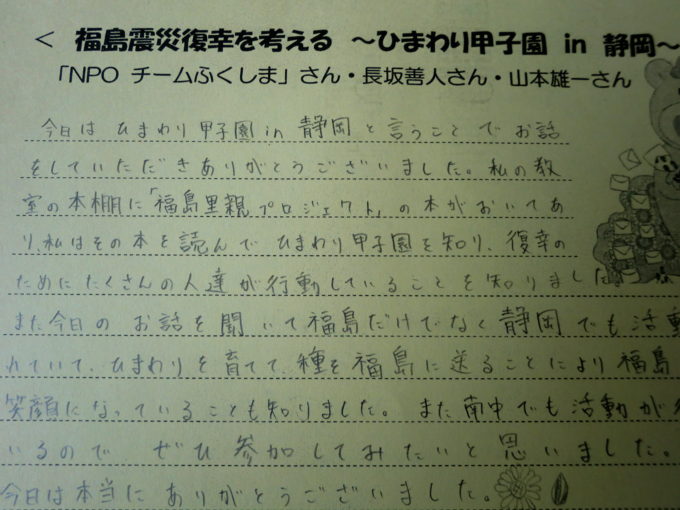 < 福島震災復幸を考える ～ひまわり甲子園 in 静岡～
「NPO チームふくしま」さん・長坂善人さん・山本雄一さん
今日は ひまわり甲子園in静岡と言うことでお話
をしていただきありがとうございました。私の教
室の本棚に「福島里親プロジェクト」の本がおいてあ
り、私はその本を読んで ひまわり甲子園を知り、復幸の
ためにたくさんの人達が行動していることを知りました
また今日の お話を聞いて福島だけでなく静岡でも活動
れていて、ひまわりを育てて、種を福島に送ることにより福島
笑顔になっていることも知りました。また南中でも活動が
いるので ぜひ参加してみたいと思いました。
今日は本当にありがとうございました。